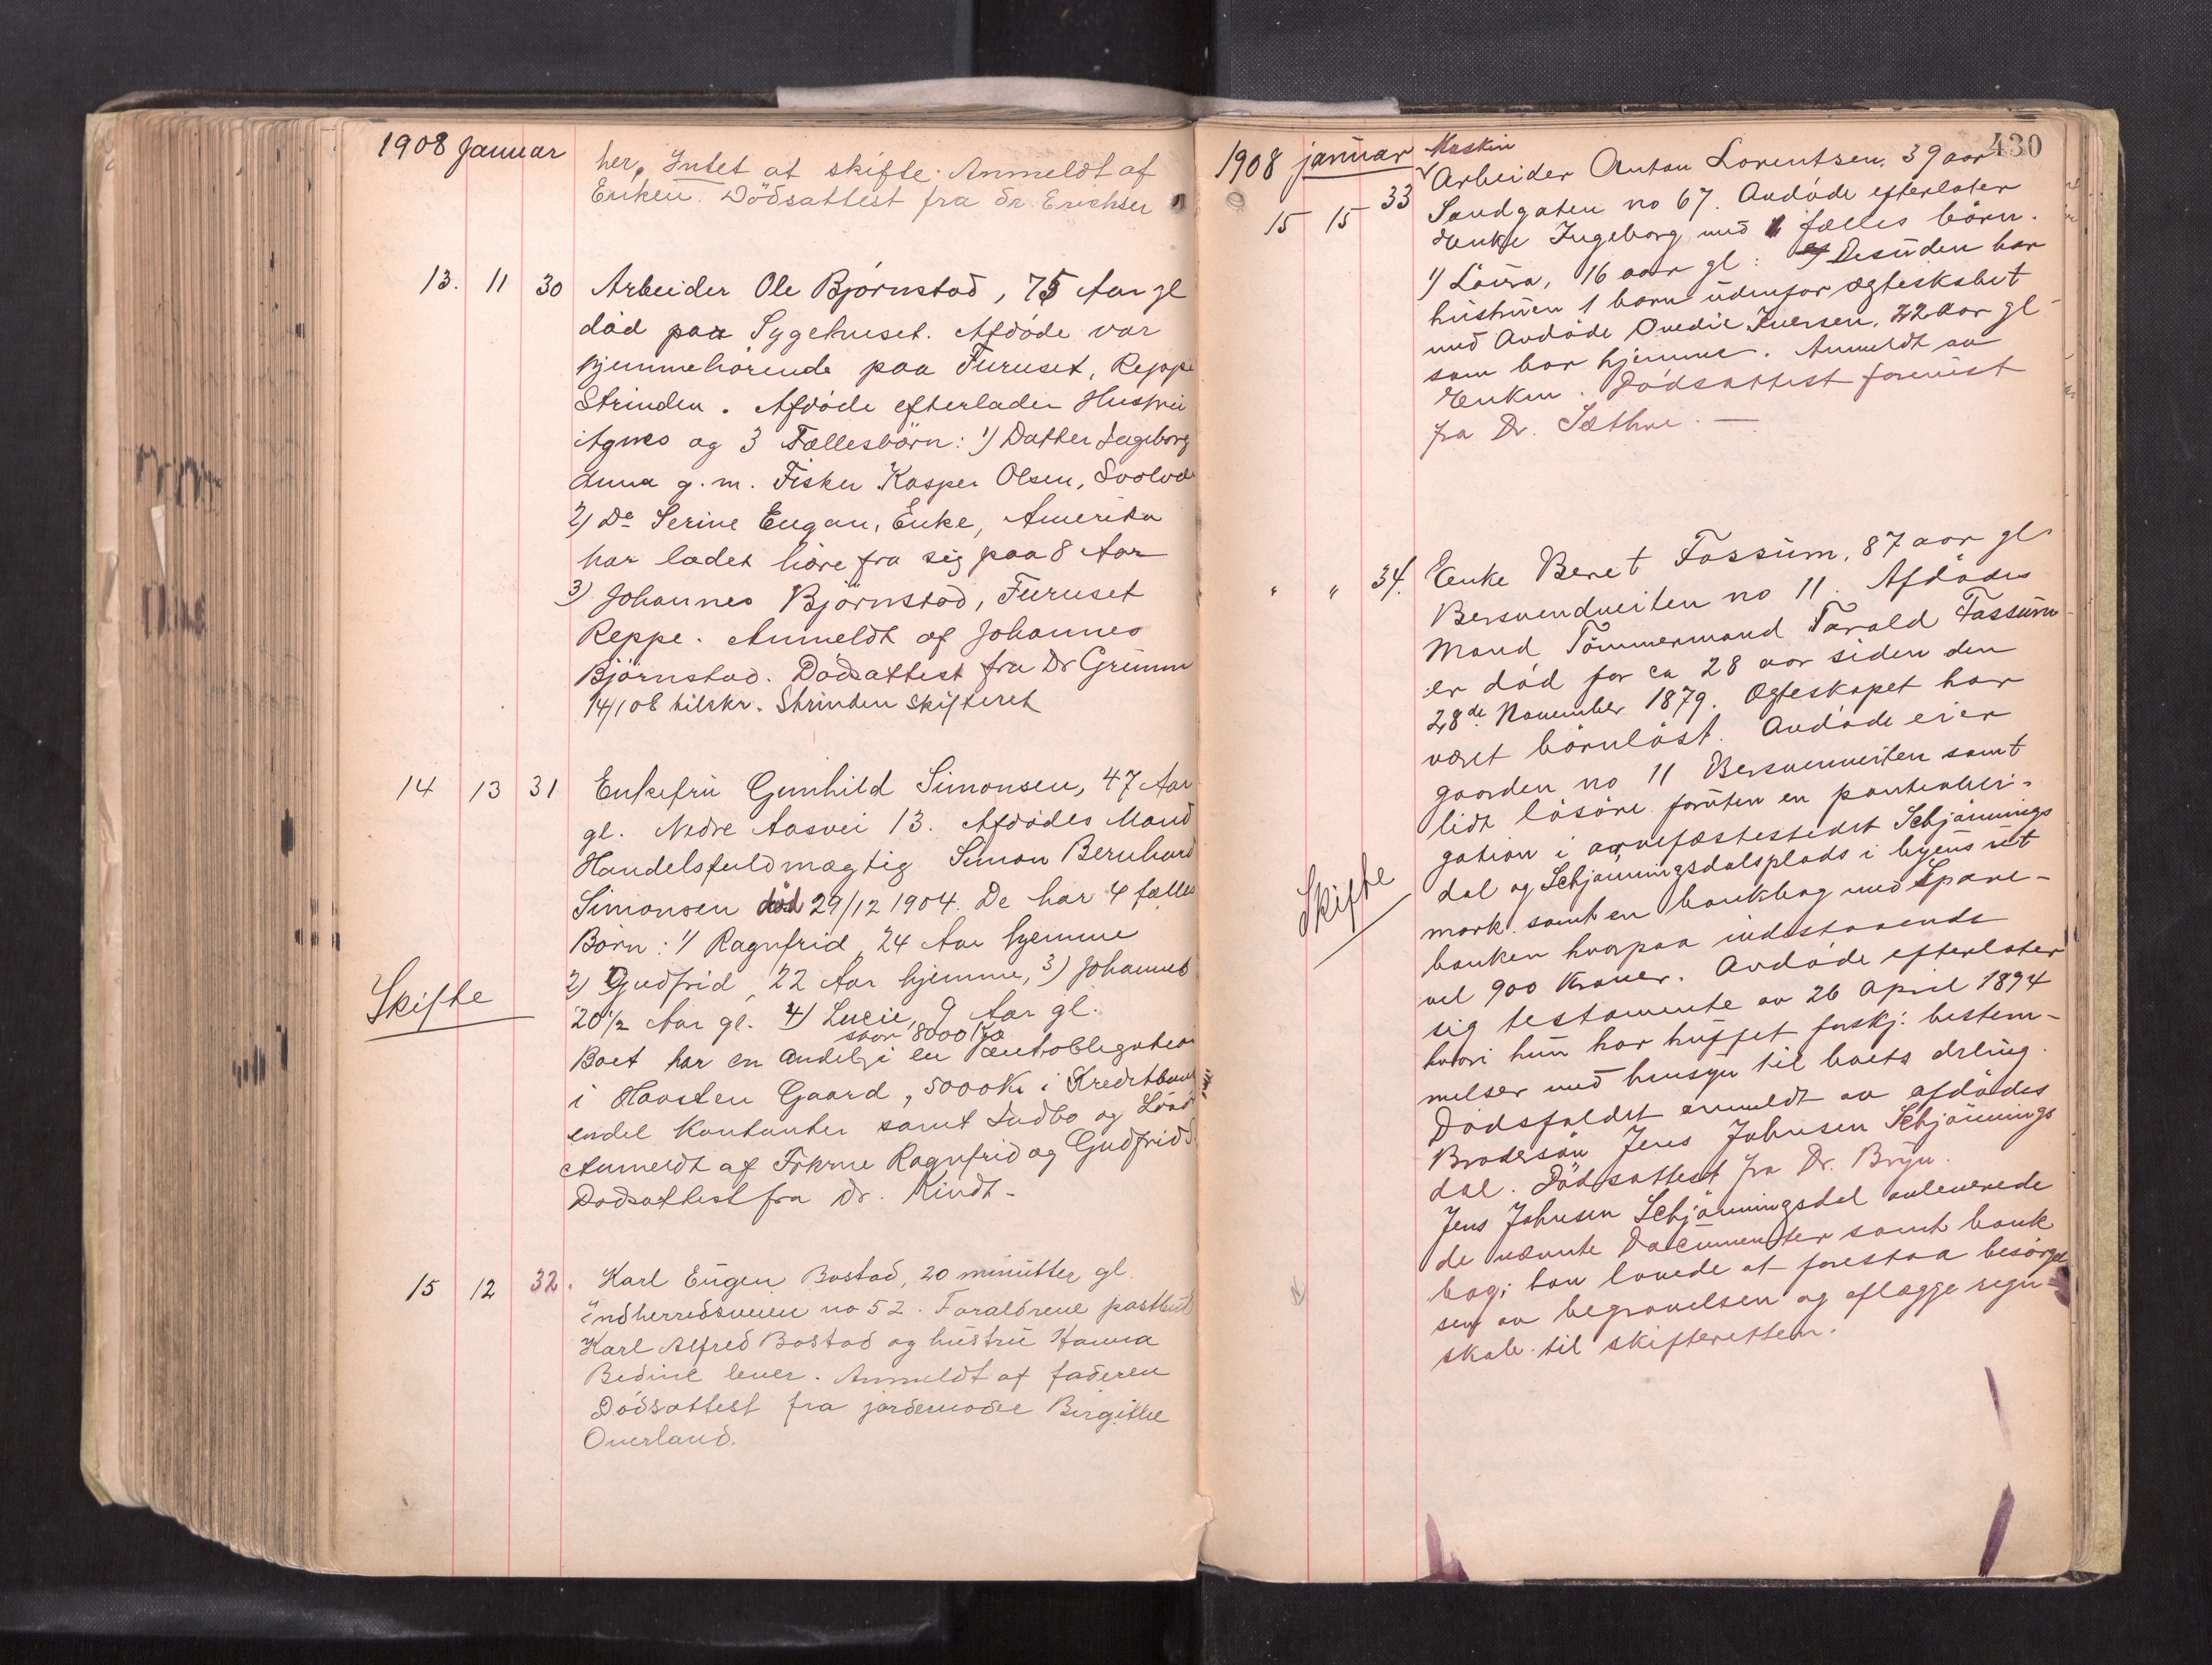 1908 Januar
her. Intet at skifte. Anmeldt af
Enken. Dödsattest fra Dr. Erichsen
13. 11 30 Arbeider Ole Bjørnstad, 75 Aar gl
död paa Sygehuset. Afdöde var
hjemmehörende paa Furuset, Reppe
Strinden. Afdöde efterlader Hustru
Agnes og 3 Fællesbörn: 1) Datter Ingeborg
Anna g. m. Fisker Kasper Olsen, Svolvær
2) Do Serine Engan, Enke, Amerika
har ladet höre fra sig paa 8 Aar
3) Johannes Björnstad, Furuset
Reppe. Anmeldt af Johannes
Björnstad. Dödsattest fra Dr Grimm
14/1 08 tilskr. Strinden Skifteret
14 13 31 Enkefru Gunhild Simonsen, 47 Aar
gl. Nedre Aasvei 13. Afdödes Mand
Handelsfuldmægtig Simon Bernhard
Simonsen död 29/12 1904. De har 4 fælles
Börn: 1) Ragnfrid, 24 Aar hjemme
2) Gudfrid, 22 Aar hjemme, 3) Johannes
Skifte
20 1/2 Aar gl. 4) Lucie, 9 Aar gl.
stor 8000 Kr
Boet har en Andel i en Panteobligation
i Havsten Gaard, 5000 Kr i Kreditbank
endel Kontanter samt Indbo og Lösöre
Anmeldt af Fröknerne Ragnfrid og Gudfrid S.
Dødsattest fra Dr. Kindt.
15 12 32. Karl Eugen Bostad, 20 minutter gl.
Indherredsveien no 52. Forældrene postbud
Karl Alfred Bostad og hustru Hanna
Bedine lever. Anmeldt af faderen
Dödsattest fra jordemoder Birgitte
Overland.
430
1908 januar Maskin
15 15 33 Arbeider Anton Lorentsen, 39 aar
Sandgaten no 67. Avdöde efterlater
Enke Ingeborg med 1 fælles börn.
1) Laura, 16 aar gl: Desuden har
hustruen 1 barn udenfor ægteskabet
med Avdöde Ovedie Iversen, 22 aar gl
som bor hjemme. Anmeldt av
Enken. Dödsattest forevist
fra Dr. Sæthre.
" " 34. Enke Beret Fossum, 87 aar gl
Bersvendveiten no 11. Afdödes
Mand Tömmermand Tarald Fossum
er död for ca 28 aar siden den
28de November 1879. Ægteskapet har
været börnlöst. Avdöde eier
gaarden no 11 Bersvenveiten samt
lidt lösöre foruten en panteobli-
gation i arvefæstestedet Schjönnings
dal og Schjönningsdalsplads i byens ut
Skifte
mark samt en bankbog med Spare-
banken hvorpaa indestaaende
vel 900 Kroner. Avdöde efterlater
sig testamente av 26 April 1894
hvori hun har truffet forskj. bestem-
melser med hensyn til boets deling.
Dödsfaldet anmeldt av afdödes
Brodersön Jens Johnsen Schjönnings
dal. Dödsattest fra Dr. Bryn.
Jens Johnsen Schjönningsdal avleverede
de nævnte Documenter samt bank
bog; han lovede at forestaa besörgel
sen av begravelsen og aflægge regn-
skab til skifteretten.